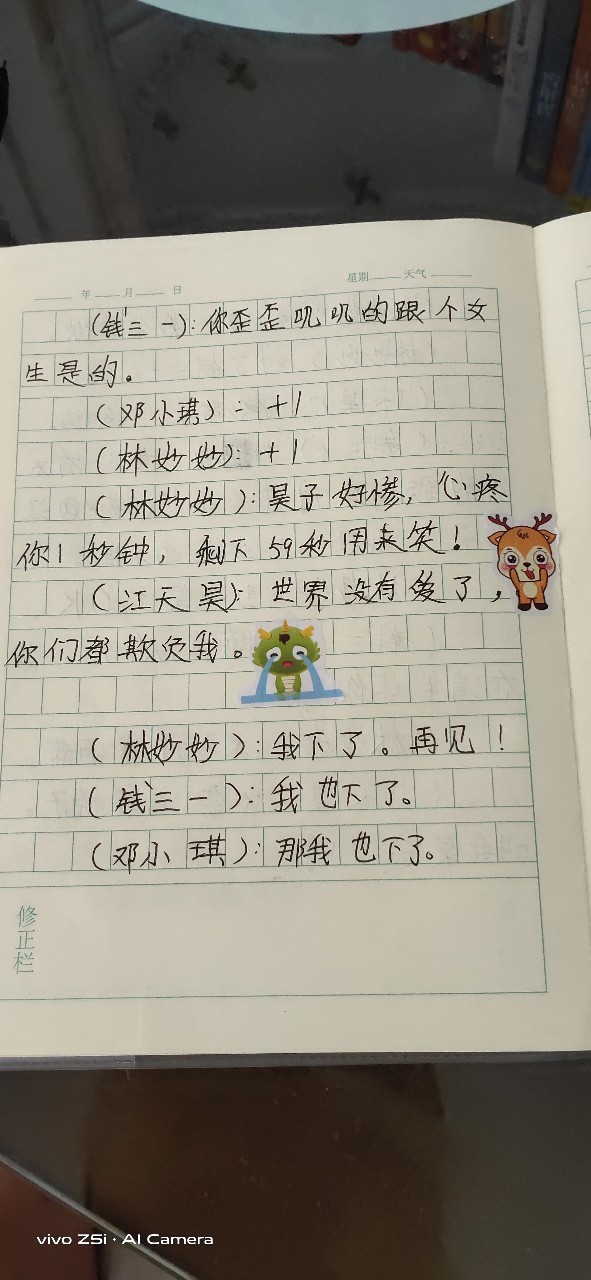 年 月 日 星期 天气
(钱三一):你歪歪叽叽的跟个女
生是的。
(邓小琪):+1
(林妙妙):+1
(林妙妙):昊子好惨,心疼
你1秒钟,剩下59秒用来笑!
(江天昊):世界没有爱了,
你们都欺负我。
(林妙妙):我下了。再见!
(钱三一):我也下了。
(邓小琪):那我也下了。
修正栏
vivo Z5i · AI Camera